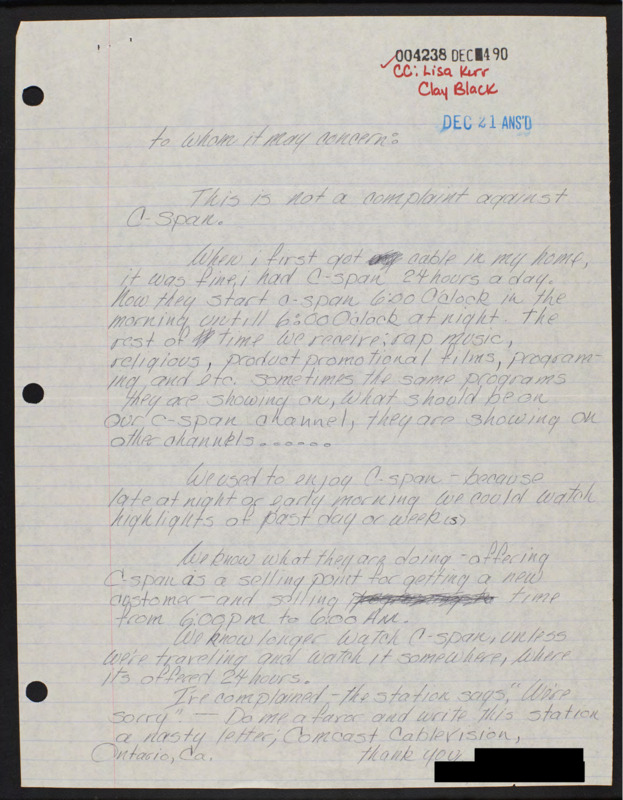 004238 DEC 4 90
CC: Lisa Kerr
Clay Black
DEC 21 ANS'D
to whom it may concern:
This is not a complaint against
C-Span.
When i first got cable in my home,
it was fine, i had C-span 24 hours a day.
Now they start c-span 6:00 O'clock in the
morning untill 6:00 O'clock at night. The
rest of time we receive: rap music,
religious, product promotional films, program-
ing, and etc. sometimes the same programs
they are showing on, what should be on
our c-span channel, they are showing on
other channels......
We used to enjoy C-span - because
late at night or early morning we could watch
highlights of past day or week(s)
We know what they are doing - offering
C-span as a selling point for getting a new
customer - and selling time
from 6:00 pm to 6:00 Am.
We know longer watch C-span, unless
we're traveling and watch it somewhere, where
it's offered 24 hours.
I've complained - the station says, "We're
sorry" — Do me a favor and write this station
a nasty letter; Comcast Cablevision,
Ontario, Ca. thank you